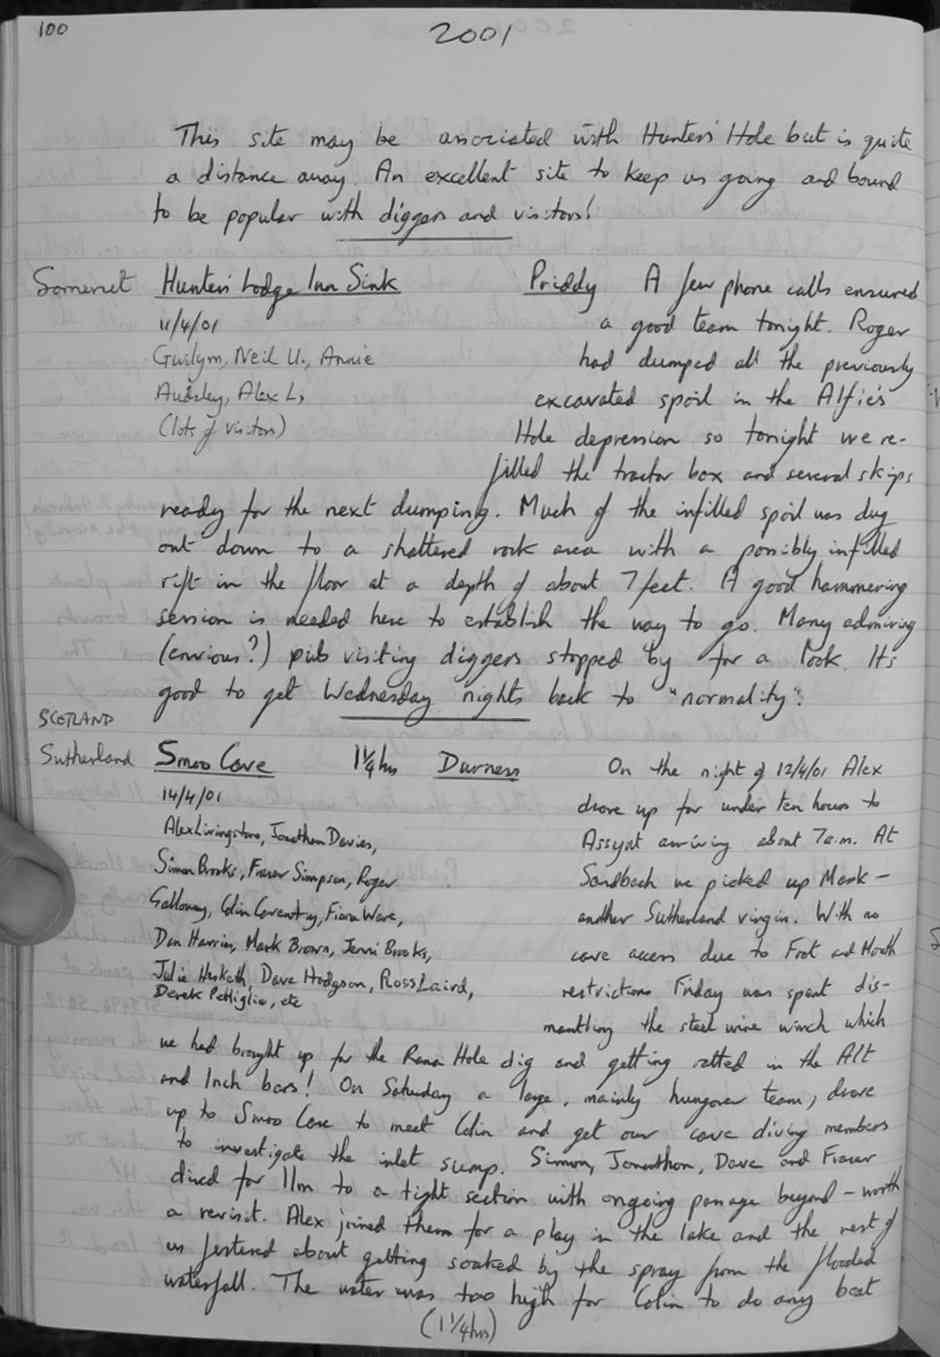 100
2001
This site may be associated with Hunters' Hole but is quite
a distance away. An excellent site to keep us going and bound
to be popular with diggers and visitors!
Somerset Hunters' Lodge Inn Sink Priddy A few phone calls ensured
11/4/01 a good team tonight. Roger
Gwilym, Neil U., Annie had dumped all the previously
Audsley, Alex L, excavated spoil in the Alfie's
(lots of visitors) Hole depression so tonight we re-
filled the tractor box and several skips
ready for the next dumping. Much of the infilled spoil was dug
out down to a shattered rock area with a possibly infilled
rift in the floor at a depth of about 7 feet. A good hammering
session is needed here to establish the way to go. Many admiring
(envious?) pub visiting diggers stopped by for a look. It's
good to get Wednesday nights back to "normality".
SCOTLAND
Sutherland Smoo Cave 1¼hrs Durness On the night of 12/4/01 Alex
14/4/01 drove up for under ten hours to
Alex Livingston, Jonathan Davies, Assynt arriving about 7a.m. At
Simon Brooks, Fraser Simpson, Roger Sandbach we picked up Mark -
Galloway, Colin Coventry, Fiona Ware, another Sutherland virgin. With no
Dan Harries, Mark Brown, Jenni Brooks, cave access due to Foot and Mouth
Julie Hesketh, Dave Hodgson, Ross Laird, restrictions Friday was spent dis-
Derek Pettiglio, etc mantling the steel wire winch which
we had brought up for the Rana Hole dig and getting ratted in the Alt
and Inch bars! On Saturday a large, mainly hungover team, drove
up to Smoo Cave to meet Colin and get our cave diving members
to investigate the inlet sump. Simon, Jonathan, Dave and Fraser
dived for 11m to a tight section with ongoing passage beyond - worth
a revisit. Alex joined them for a play in the lake and the rest of
us festered about getting soaked by the spray from the flooded
waterfall. The water was too high for Colin to do any boat
(1¼hrs)